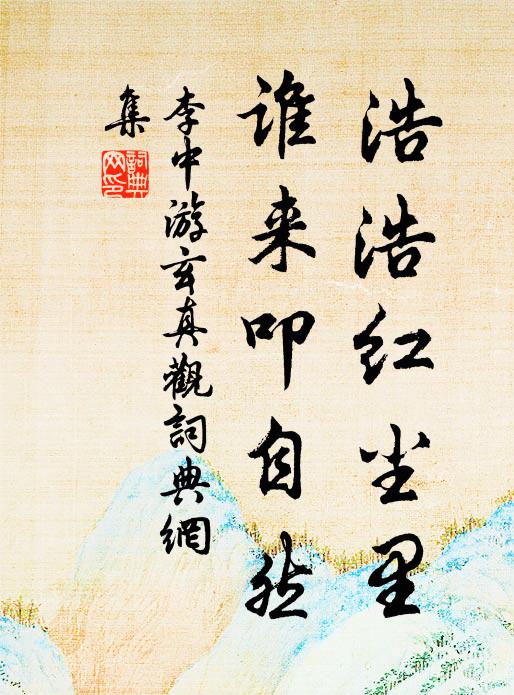 浩浩红尘里
谁来叩自然
李中游玄真觀詞典網
集
詞典
网印